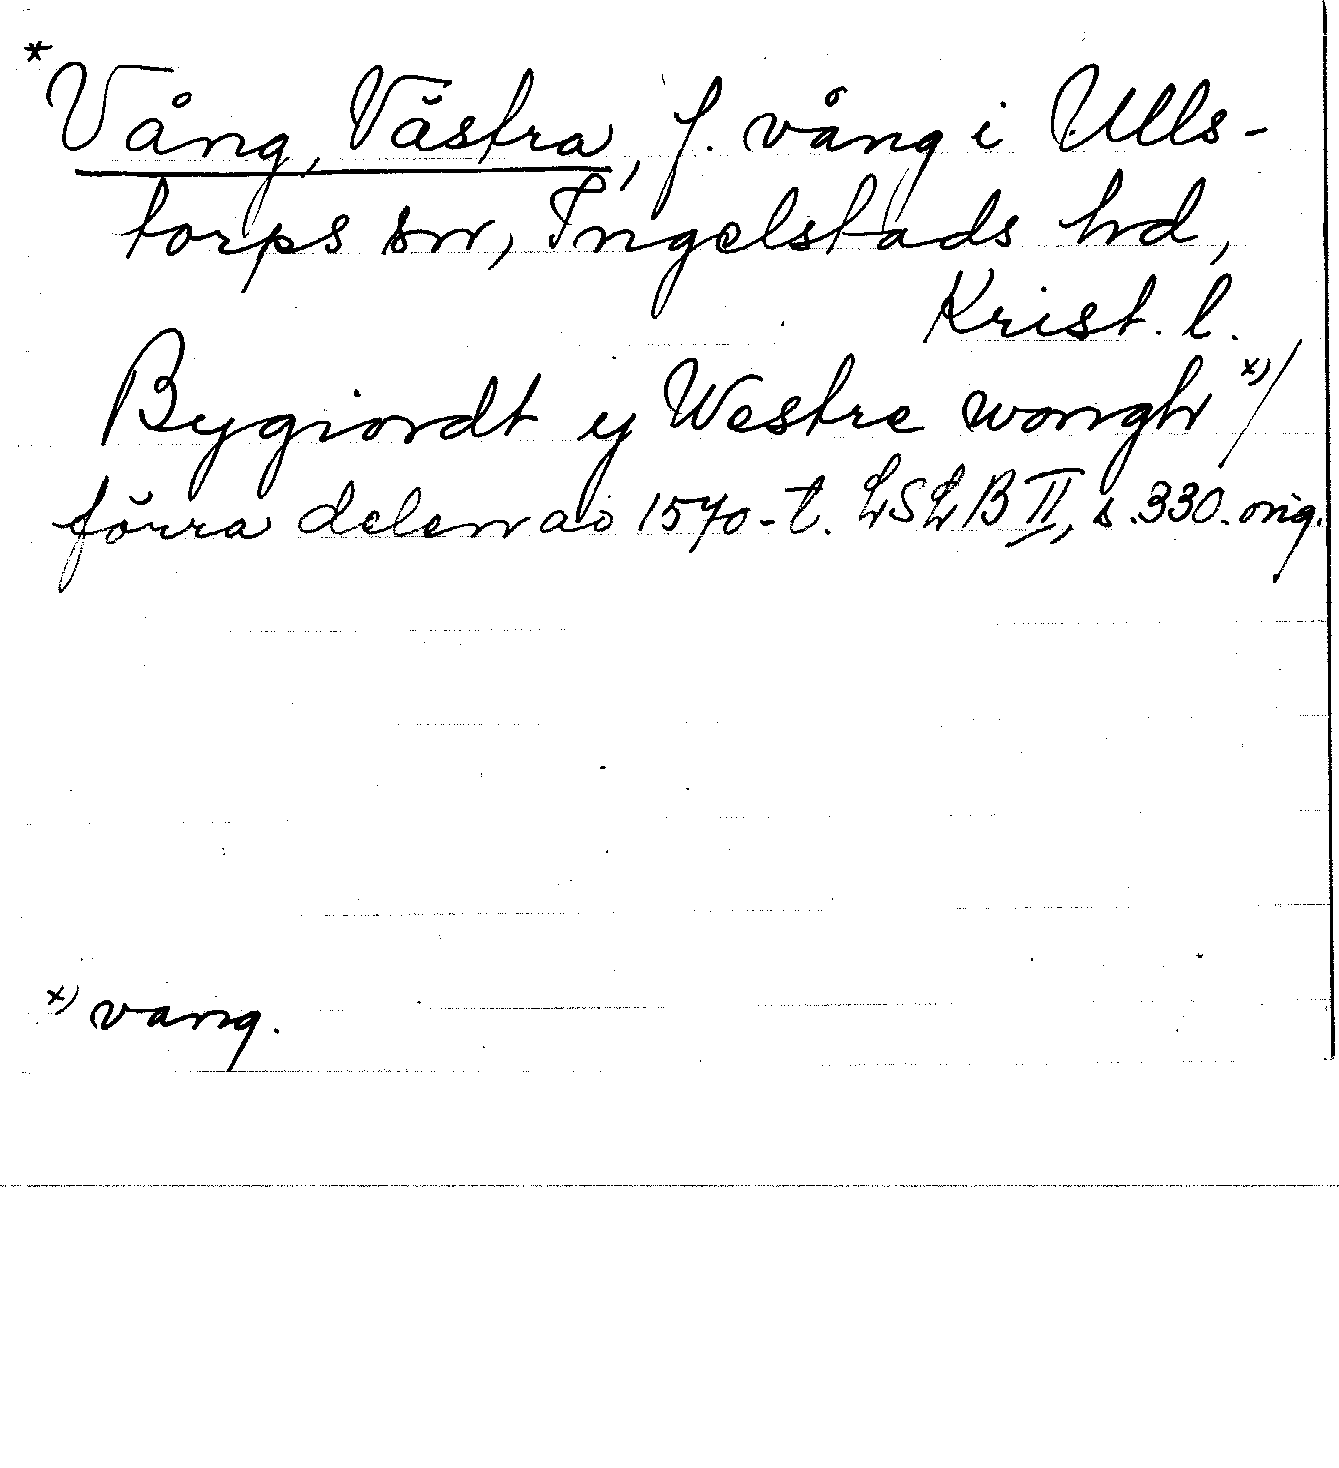 *Vång, Västra, f. vång i Ulls-
torps sn, Ingelstads hd,
Krist. l.
Bygiordt y Westre wongh x)/
förra delen av 1570-t. LSLB II, s. 330. orig.
x) vang.